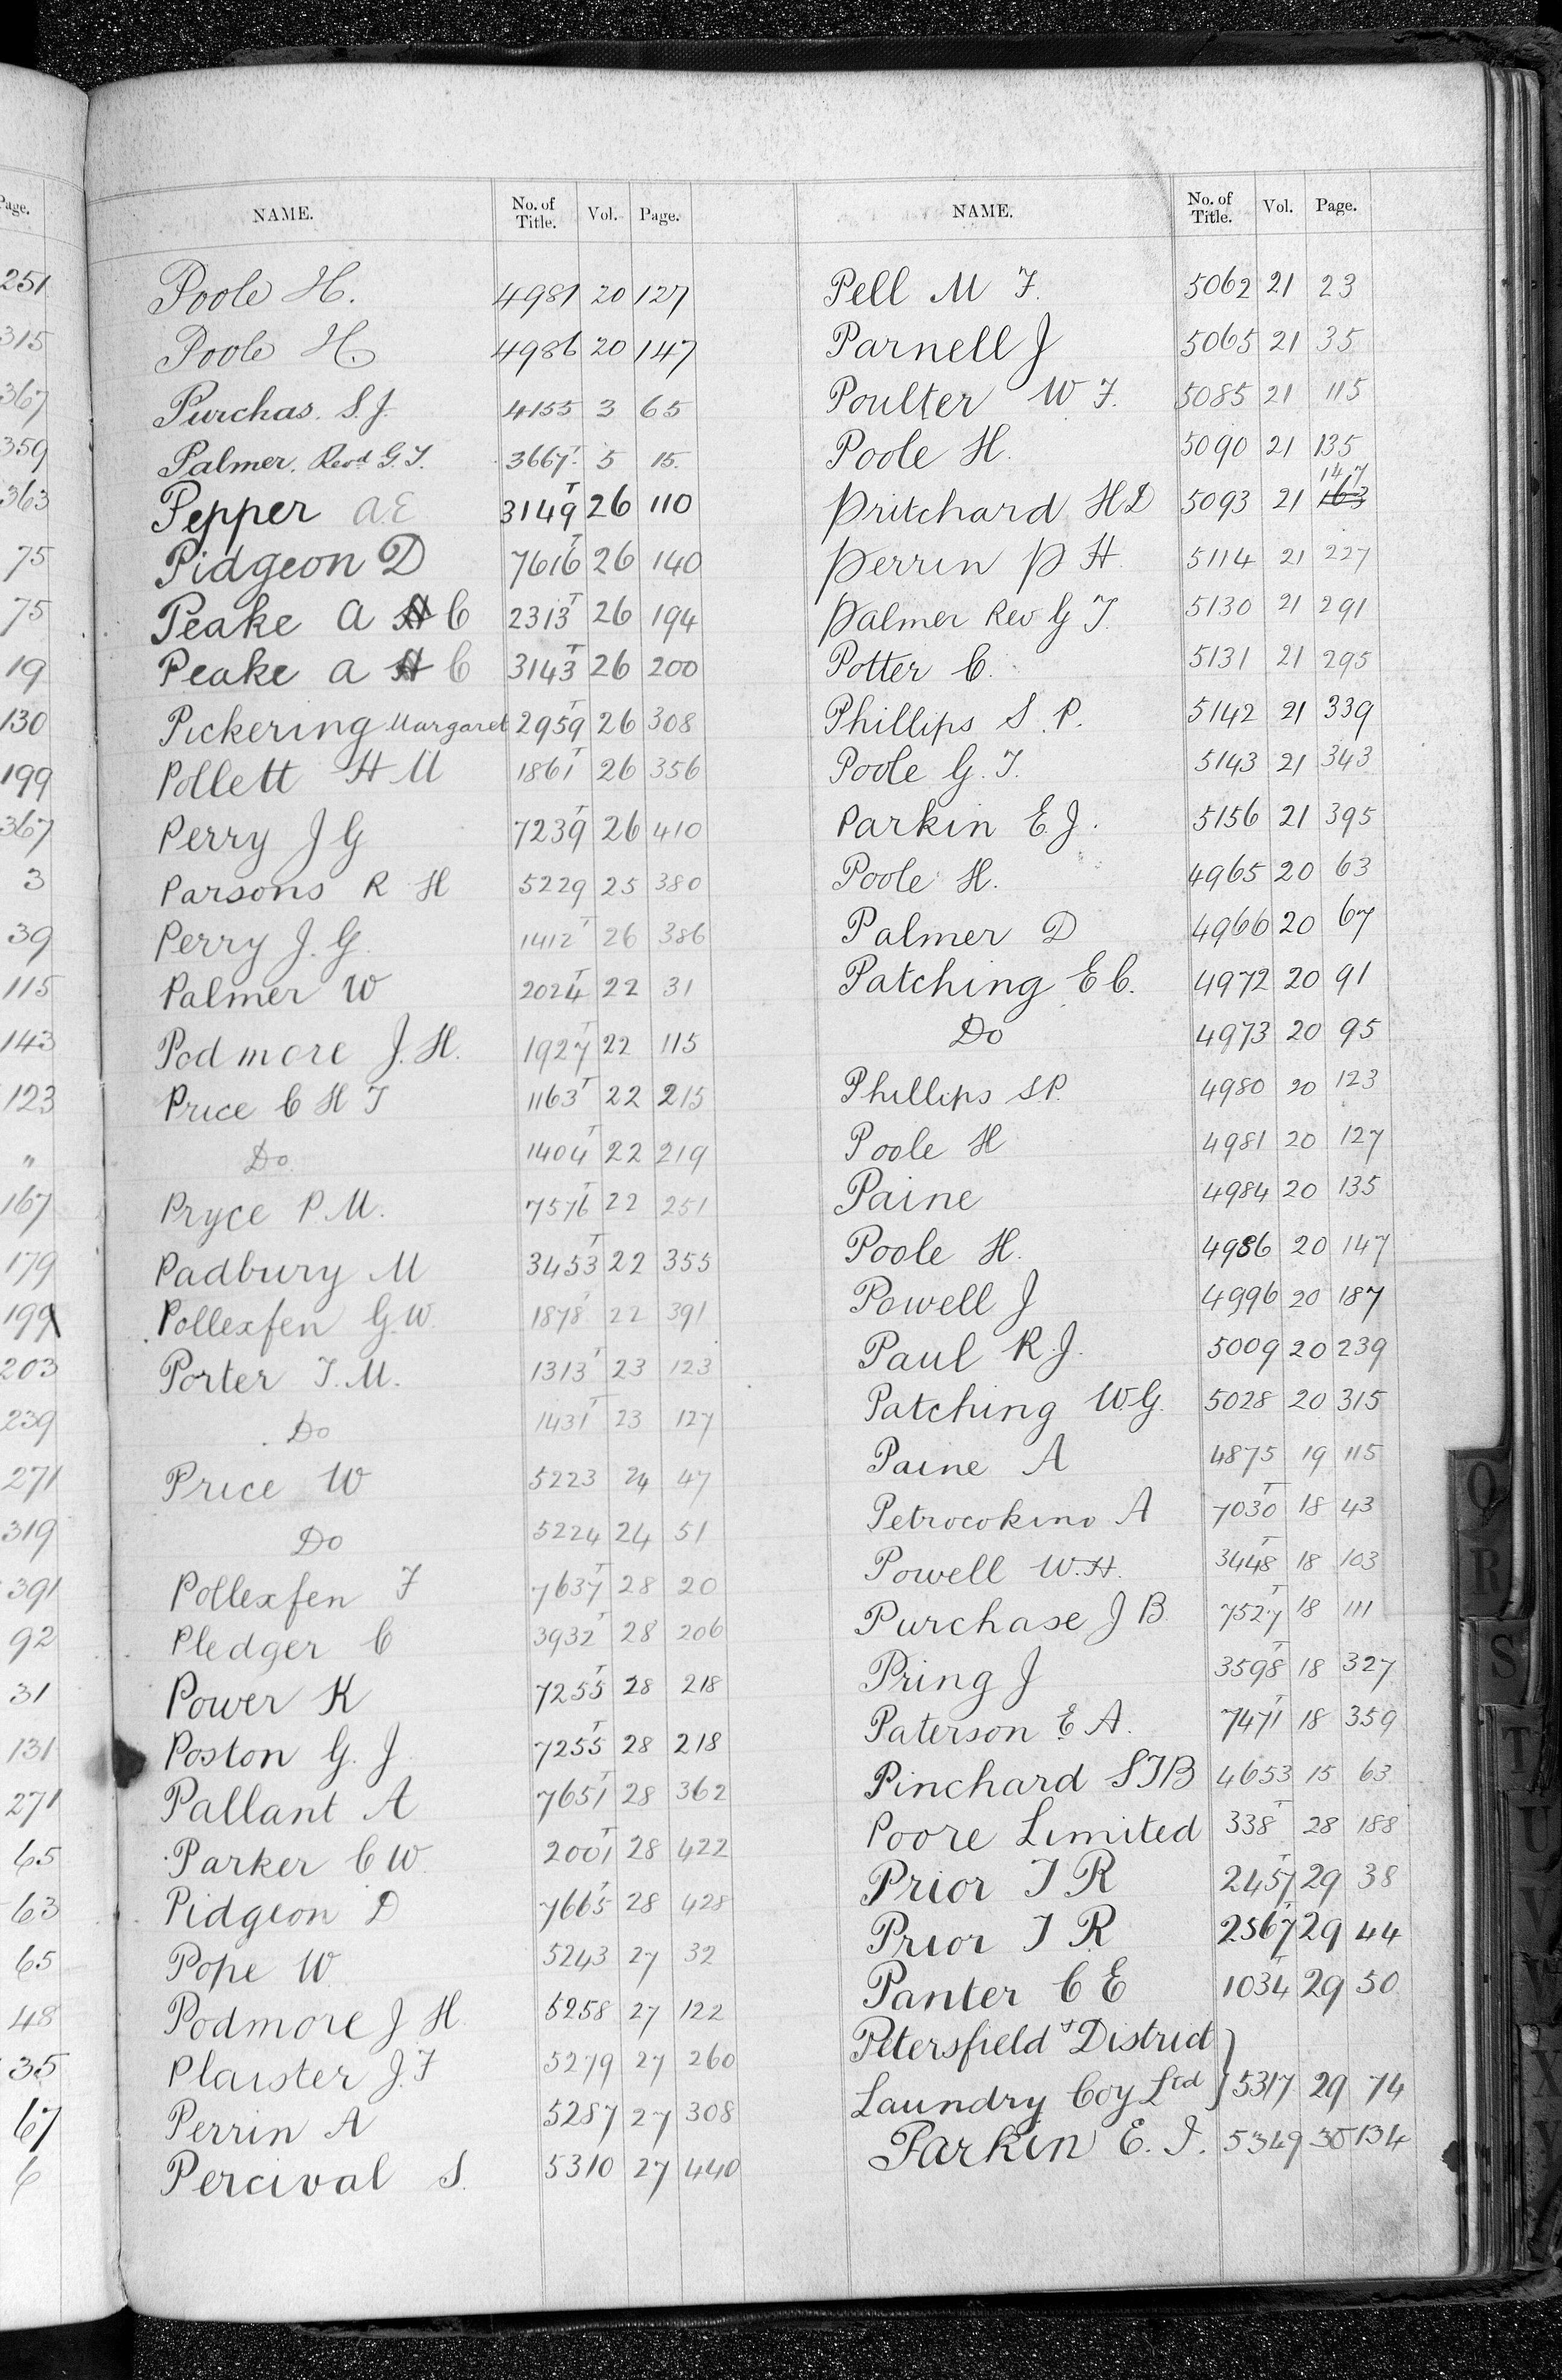 Page.
251
315
367
359
363
75
75
19
130
199
367
3
39
115
143
123
"
167
179
199
203
239
271
319
391
92
31
131
271
65
63
65
48
35
67
6
NAME. No. of Title. Vol. Page.
Poole H. 4981 20 127
Poole H. 4986 20 147
Purchas. S.J. 4155 3 65
Palmer. Revd G.T. 3667T 5 15.
Pepper A.E 3149T 26 110
Pidgeon D 7616T 26 140
Peake A H C 2313T 26 194
Peake A H C 3143T 26 200
Pickering Margaret 2959T 26 308
Pollett H M 1861T 26 356
Perry J G 7239T 26 410
Parsons R H 5229 25 380
Perry J. G. 1412T 26 386
Palmer W 2024T 22 31
Podmore J. H. 1927T 22 115
Price C H T 1163T 22 215
Do 1404T 22 219
Pryce P. M. 7576T 22 251
Padbury M 3453T 22 355
Pollexfen G.W. 1878T 22 391
Porter T. M. 1313T 23 123
Do 1431T 23 127
Price W 5223 24 47
Do 5224 24 51
Pollexfen F 7637T 28 20
Pledger C 3932T 28 206
Power K 7255T 28 218
Poston G. J 7255T 28 218
Pallant A 7651T 28 362
Parker C W. 2001T 28 422
Pidgeon D 7665T 28 428
Pope W. 5243 27 32
Podmore J H. 5258 27 122
Plaister J. F 5279 27 260
Perrin A 5287 27 308
Percival S. 5310 27 440
NAME. No. of Title. Vol. Page.
Pell M F. 5062 21 23
Parnell J 5065 21 35
Poulter W F. 5085 21 115
Poole H. 5090 21 135
Pritchard H D 5093 21 163 147
Perrin P H. 5114 21 227
Palmer Rev G T. 5130 21 291
Potter C. 5131 21 295
Phillips S. P. 5142 21 339
Poole G. T. 5143 21 343
Parkin E. J. 5156 21 395
Poole H. 4965 20 63
Palmer D 4966 20 67
Patching E C. 4972 20 91
Do 4973 20 95
Phillips S.P. 4980 20 123
Poole H 4981 20 127
Paine 4984 20 135
Poole H. 4986 20 147
Powell J 4996 20 187
Paul R. J. 5009 20 239
Patching W.G. 5028 20 315
Paine A 4875 19 115
Petrocokino A 7030T 18 43
Powell W. H. 3448T 18 103
Purchase J B. 7527T 18 111
Pring J 3598T 18 327
Paterson E A. 7471T 18 359
Pinchard S T B 4653 15 63
Poore Limited 338T 28 188
Prior T R 2457T 29 38
Prior T R 2567T 29 44
Panter C E 1034T 29 50
Petersfield & District
Laundry Coy Ltd } 5317 29 74
Parkin E. J. 5349 30 134
Q
R
S
T
U
V
W
X
Y